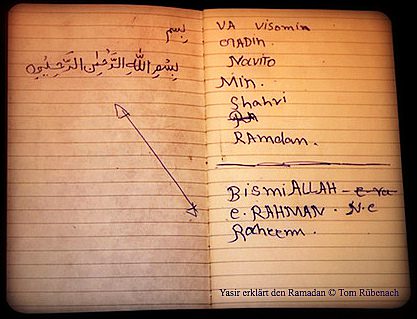 بسم
بِسْمِ اللهِ الرَّحْمٰنِ الرَّحِيْمِ
VA Visomin
GADIN
Navito
Min.
Shahri
RA
RAmadan.
BismiALLAH - e ra
e. RAHMAN. N.e
Raheem.
Yasir erklärt den Ramadan © Tom Rübenach